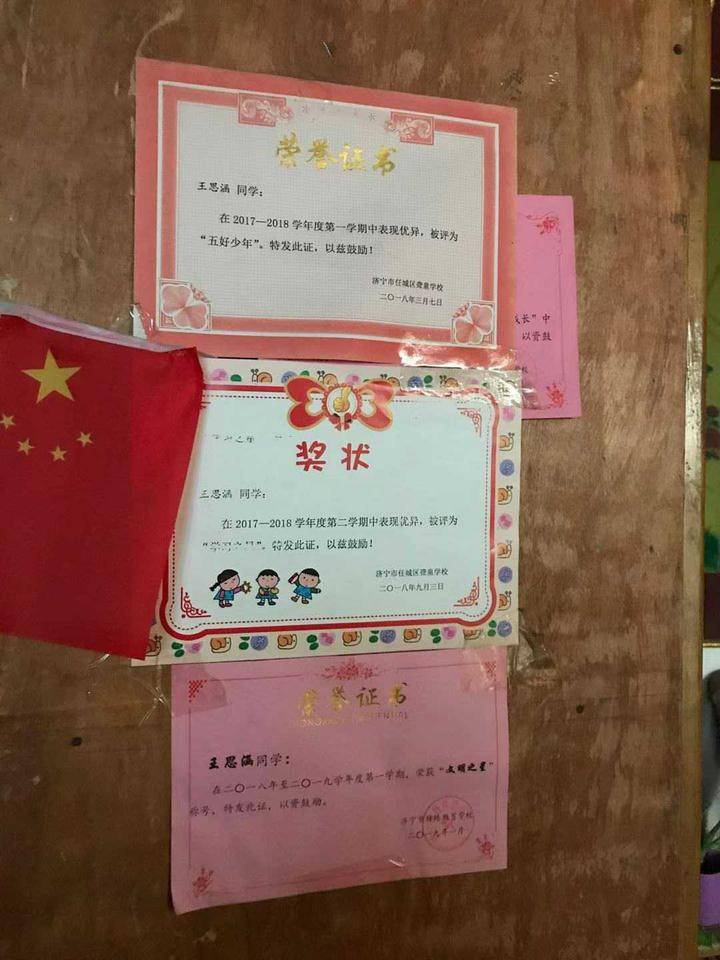 荣誉证书
王思涵 同学：
在 2017—2018 学年度第一学期中表现优异，被评为
“五好少年”。特发此证，以兹鼓励！
济宁市任城区聋童学校
二〇一八年三月七日
长”中
以资鼓
校
奖状
王思涵 同学：
在 2017—2018 学年度第二学期中表现优异，被评为
”。特发此证，以兹鼓励！
济宁市任城区聋童学校
二〇一八年九月三日
荣誉证书
王思涵同学：
在二〇一八年至二〇一九学年度第一学期，荣获“文明之星”
称号，特发此证，以资鼓励。
济宁市特殊教育学校
二〇一九年一月